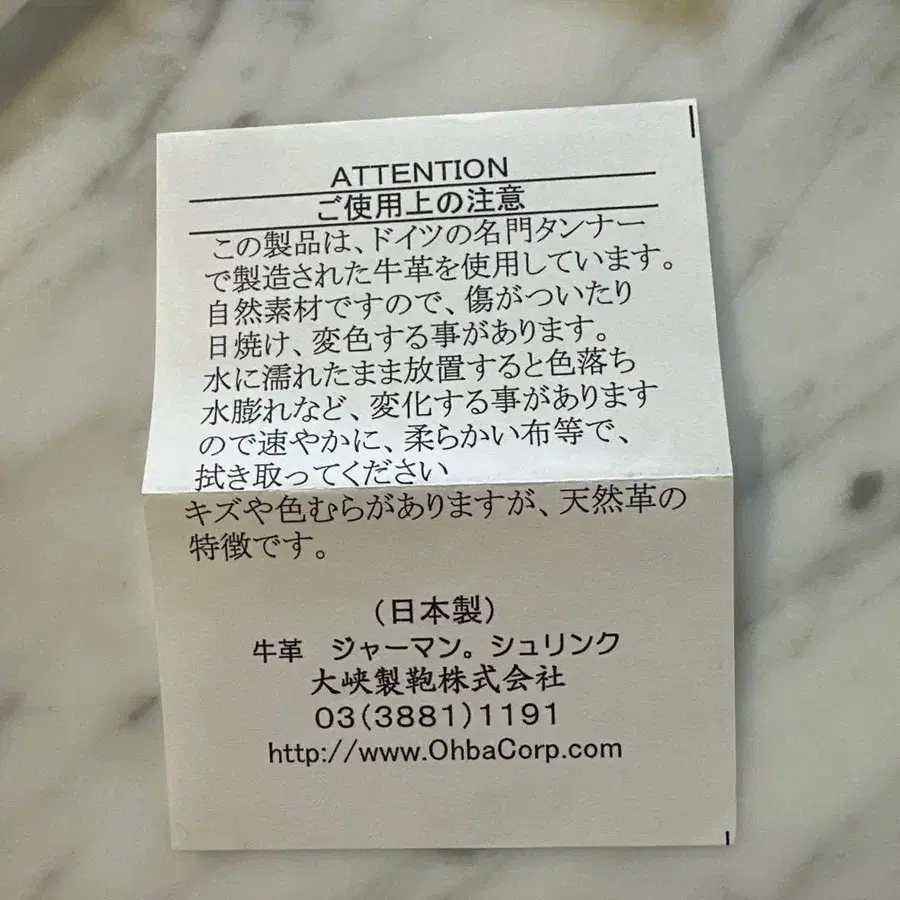 ATTENTION
ご使用上の注意
この製品は、ドイツの名門タンナー
で製造された牛革を使用しています。
自然素材ですので、傷がついたり
日焼け、変色する事があります。
水に濡れたまま放置すると色落ち
水膨れなど、変化する事があります
ので速やかに、柔らかい布等で、
拭き取ってください
キズや色むらがありますが、天然革の
特徴です。
(日本製)
牛革 ジャーマン。シュリンク
大峡製鞄株式会社
03(3881)1191
http://www.OhbaCorp.com